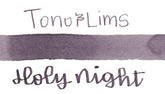 Tono&Lims
Holy night